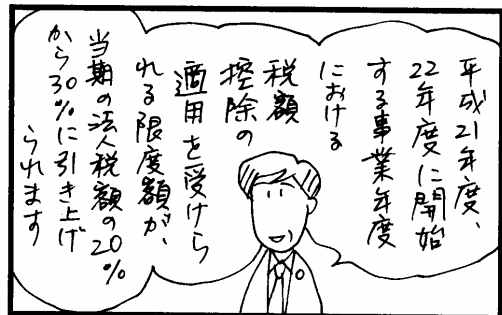 平成21年度、
22年度に開始
する事業年度
における
税額
控除の
適用を受けら
れる限度額が、
当期の法人税額の20%
から30%に引き上げ
られます